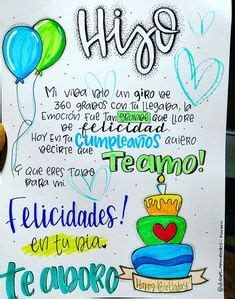 Hijo
Mi vida dio un giro de
360 grados con tu llegaba, la
Emoción fue tan grande que llore
de felicidad
Hoy en tu Cumpleaños quiero
decirte que
Te amo!
y que eres todo
para mi.
Felicidades!
en tu día.
Te adoro
Happy Birthday!